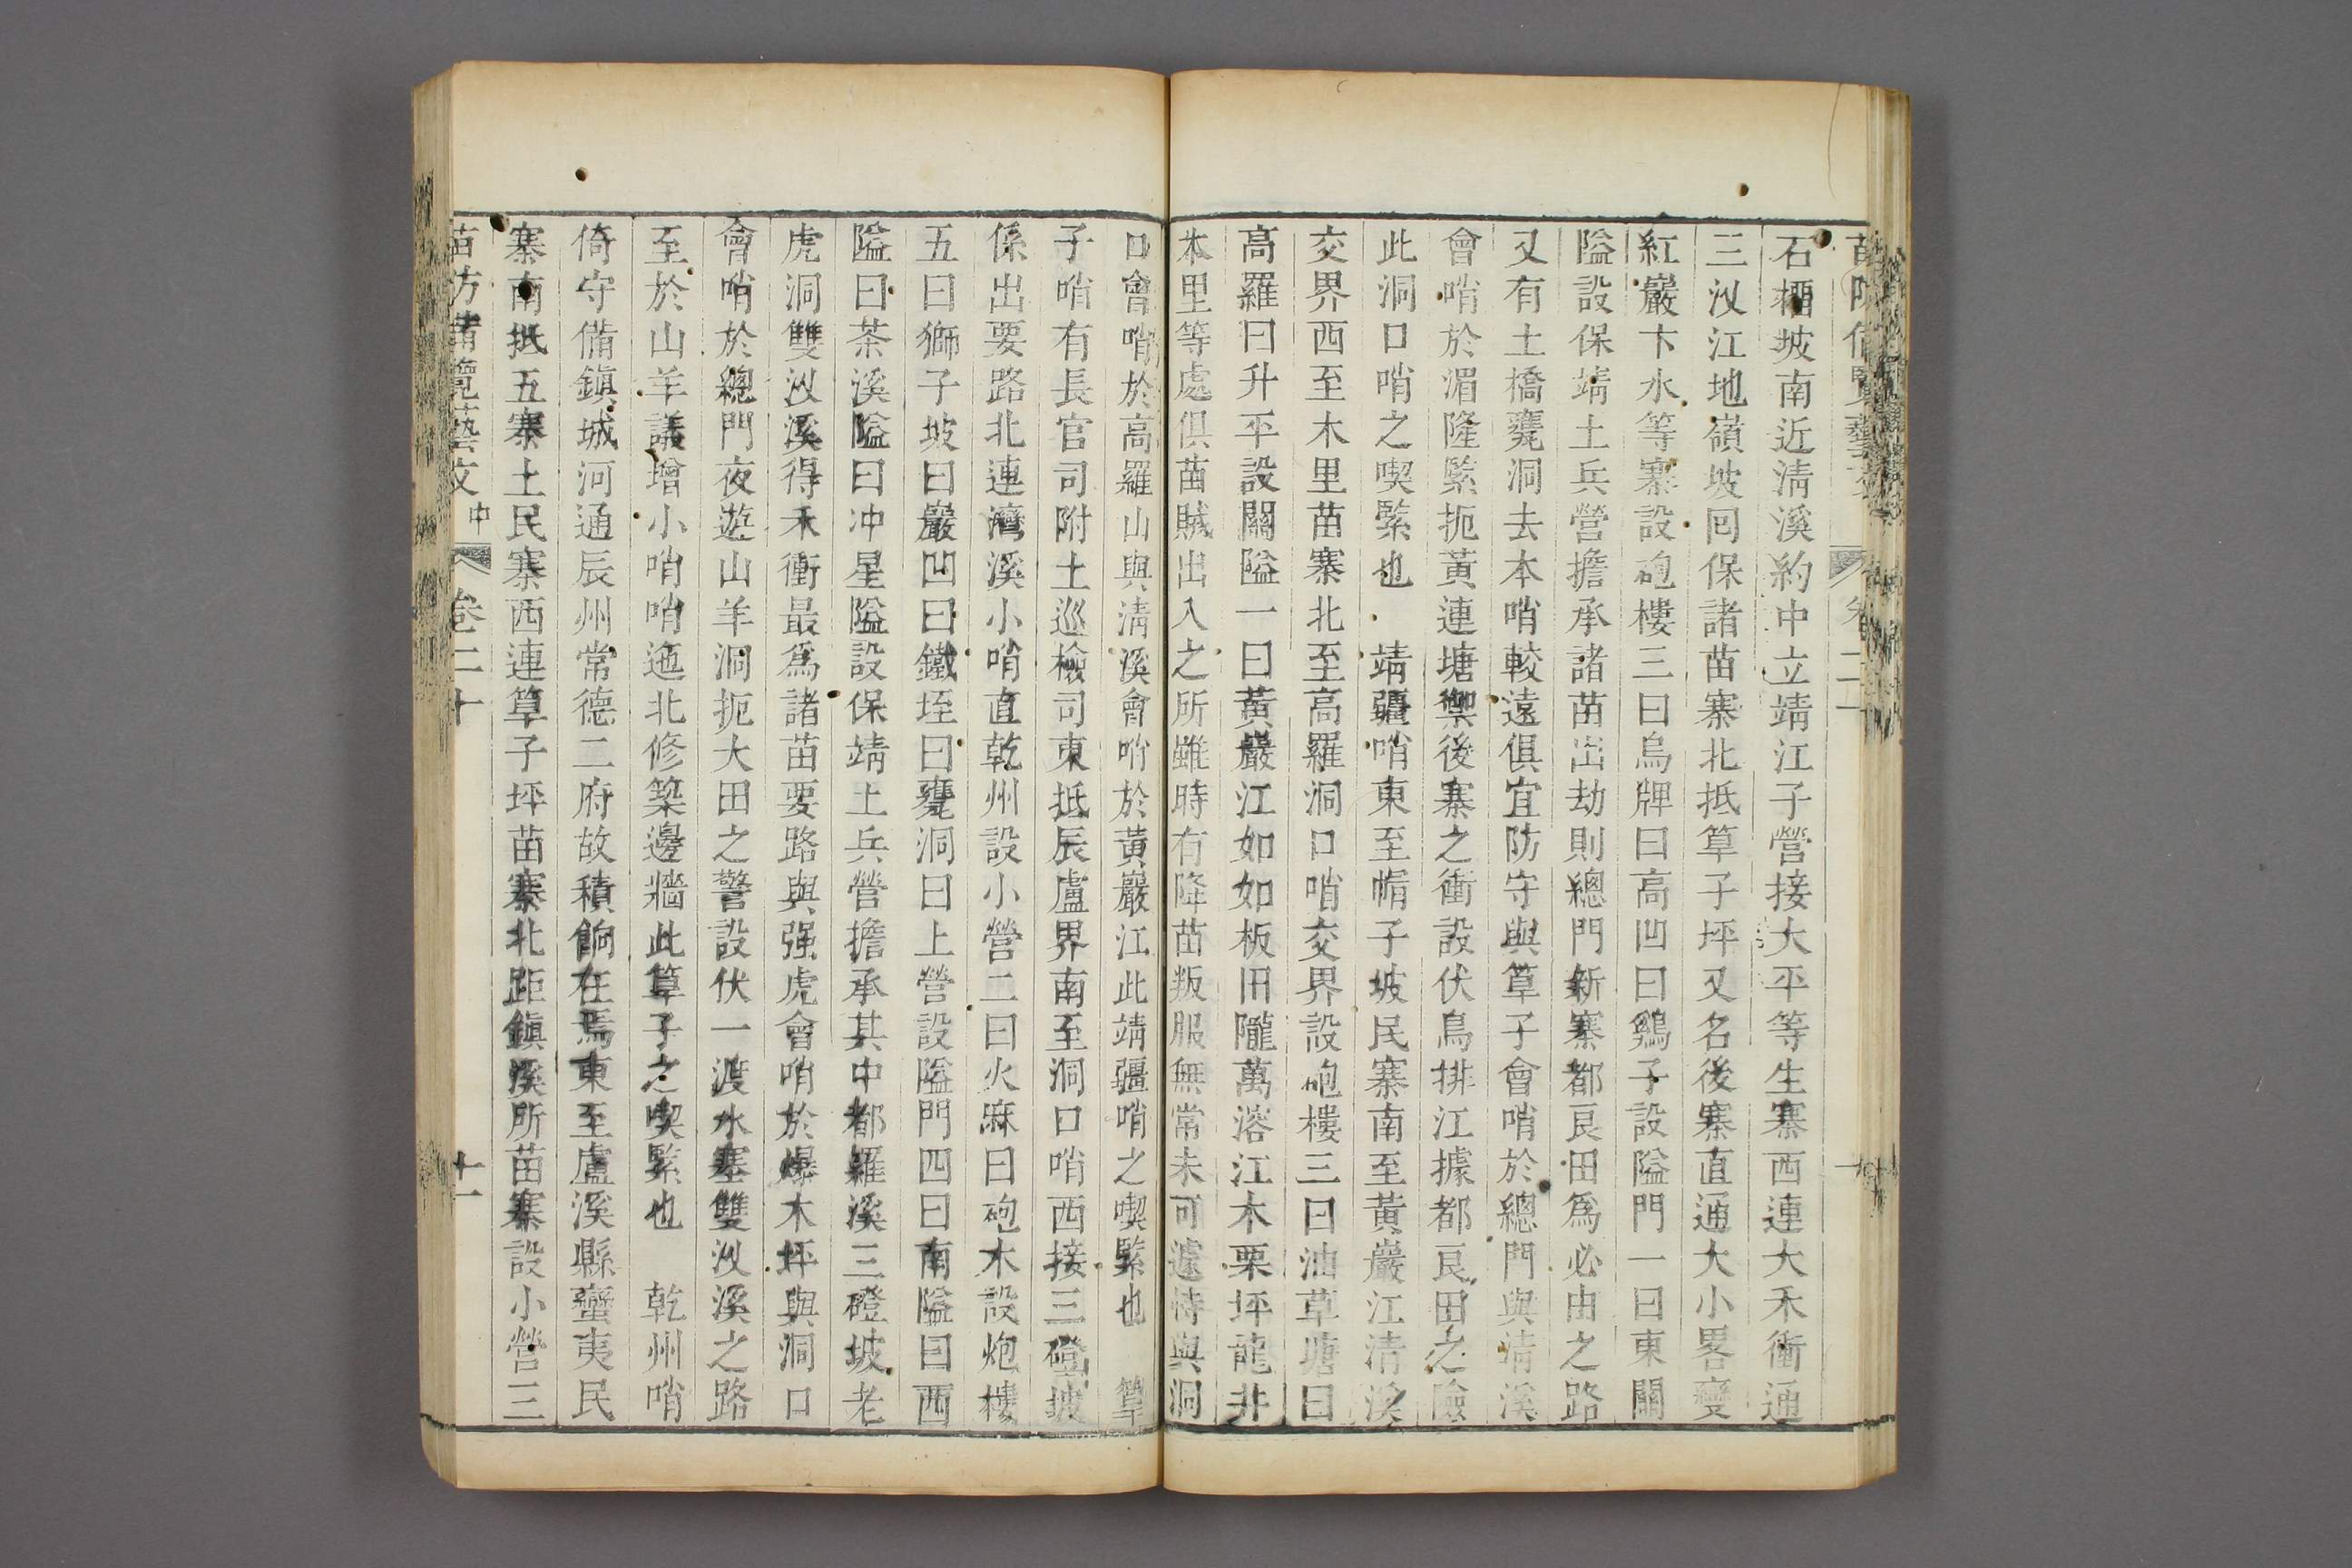 石栖坡南近清溪約中立靖江子營接大平等生寨西連大禾衝通
三汊江地嶺坡囘保諸苗寨北抵筸子坪又名後寨直通大小畧變
紅巖卞水等寨設砲樓三曰烏牌曰高凹曰鷄子設隘門一曰東關
隘設保靖土兵營擔承諸苗出劫則總門新寨都良田爲必由之路
又有土橋甕洞去本哨較遠俱宜防守與筸子會哨於總門與清溪
會哨於湄隆緊扼黃連塘禦後寨之衝設伏烏排江據都良田之險
此洞口哨之喫緊也　靖疆哨東至帽子坡民寨南至黃巖江清溪
交界西至木里苗寨北至高羅洞口哨交界設砲樓三曰油草塘曰
高羅曰升平設關隘一曰黃巖江如如板田隴萬溶江木栗坪龍井
木里等處俱苗賊出入之所雖時有降苗叛服無常未可遽恃與洞
口會哨於高羅山與清溪會哨於黃巖江此靖疆哨之喫緊也　筸
子哨有長官司附土巡檢司東抵辰盧界南至洞口哨西接三磴坡
係出要路北連灣溪小哨直乾州設小營二曰火麻曰砲木設炮樓
五曰獅子坡曰巖凹曰鐵垤曰甕洞曰上營設隘門四曰南隘曰西
隘曰茶溪隘曰冲星隘設保靖土兵營擔承其中都羅溪三磴坡老
虎洞雙汊溪得禾衝最爲諸苗要路與强虎會哨於爆木坪與洞口
會哨於總門夜遊山羊洞扼大田之警設伏一渡水塞雙汊溪之路
至於山羊議增小哨哨迤北修築邊牆此筸子之喫緊也　乾州哨
倚守備鎮城河通辰州常德二府故積餉在焉東至盧溪縣蠻夷民
寨南抵五寨土民寨西連筸子坪苗寨北距鎮溪所苗寨設小營三
苗防備覽藝文中　卷二十　十一